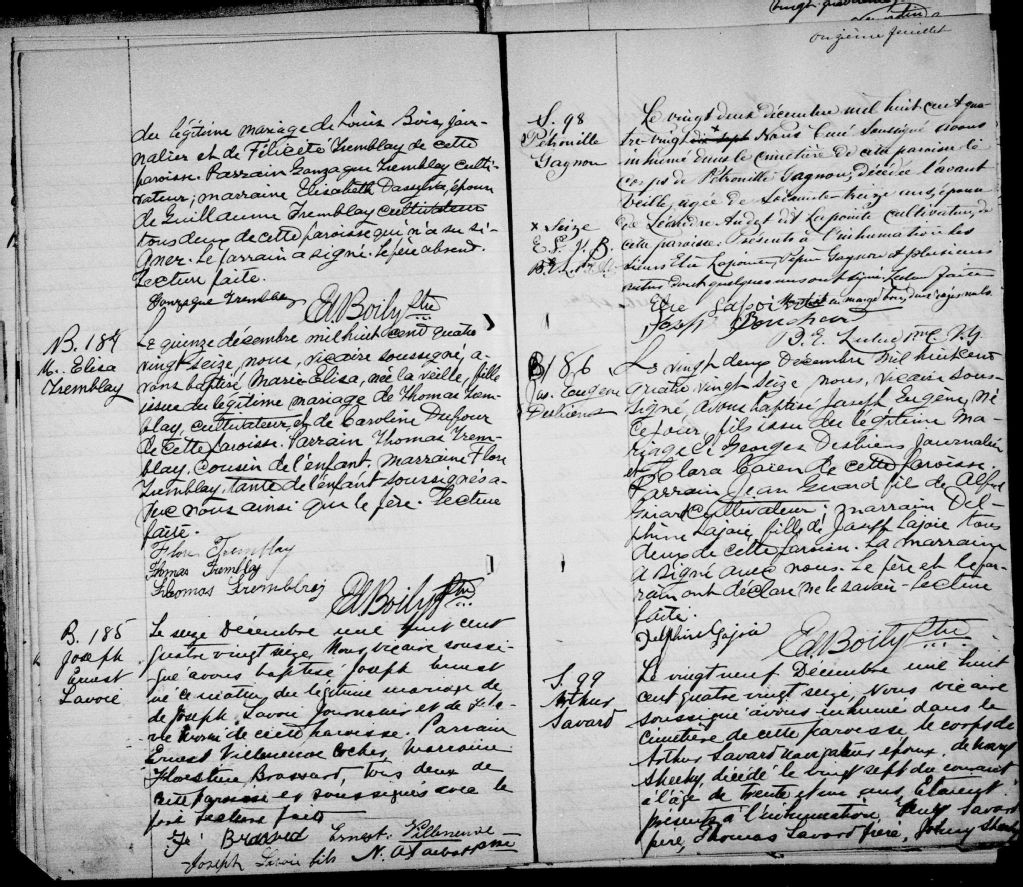 du légitime mariage de Louis Bois, jour-
nalier et de Félicité Tremblay de cette
paroisse. Parrain Gonzague Tremblay culti-
vateur; marraine Elisabeth Dassylva, épouse
de Guillaume Tremblay cultivateur
tous deux de cette paroisse qui n'a su si-
gner. Le parrain a signé. Le père absent.
Lecture faite.
Gonzague Tremblay
Ed. Boily Ptre
B. 184
M. Elisa
Tremblay
Le quinze décembre mil huit cent quatre
vingt seize, nous, vicaire soussigné, a-
vons baptisé Marie Elisa, née la veille, fille
issue du légitime mariage de Thomas Trem-
blay, cultivateur, et de Caroline Dufour
de cette paroisse. Parrain Thomas Trem-
blay, cousin de l'enfant. Marraine Flore
Tremblay, tante de l'enfant soussignés a-
vec nous ainsi que le père. Lecture
faite.
Flore Tremblay
Thomas Tremblay
Thomas Tremblay
Ed. Boily Ptre
B. 185
Joseph
Ernest
Lavoie
Le seize Décembre mil huit cent
quatre vingt seize, Nous vicaire soussi-
gné avons baptisé Joseph Ernest
né ce matin, du légitime mariage de
de Joseph Lavoie Journalier et de
de cette paroisse. Parrain
Ernest Villeneuve Cocher, Marraine
Florestine Brassard, tous deux de
cette paroisse et soussignés avec le
père Lecture faite
Brassard Ernest Villeneuve
Joseph Lavoie fils
onzième feuillet
S. 98
Pétronille
Gagnon
Le vingt deux décembre mil huit cent qua-
tre vingt dix sept Nous Curé soussigné avons
inhumé dans le cimetière de cette paroisse le
corps de Pétronille Gagnon, décédée l'avant
veille, agée de soixante-treize ans, épouse
de Léandre Audet dit Lapointe cultivateur, de
cette paroisse. Présents à l'inhumation les
sieurs Lapointe, Gagnon et plusieurs
autres dont quelques uns ont signé. Lecture faite
x seize
en marge bon, deux rayés nuls.
Joseph Boucher
B. 186
Jos. Eugène
Desbiens
Le vingt deux Décembre mil huit cent
quatre vingt seize, nous, vicaire sous-
signé, avons baptisé Joseph Eugène, né
ce jour, fils issu du légitime ma-
riage de Georges Desbiens Journalier
et Clara Caien de cette paroisse.
Parrain Jean Guard fils de Alfred
Guard cultivateur; marraine Del-
phine Lajoie, fille de Joseph Lajoie tous
deux de cette paroisse. La marraine
a signé avec nous. Le père et le par-
rain ont déclaré ne le savoir. Lecture
faite.
Delphine Lajoie
Ed. Boily Ptre
S. 99
Arthur
Savard
Le vingt neuf Décembre mil huit
cent quatre vingt seize, Nous vicaire
soussigné avons inhumé dans le
cimetière de cette paroisse, le corps de
Arthur Savard navigateur époux de Mary
Sheehy, décédé le vingt sept du courant
à l'âge de trente et un ans, Etaient
présents à l'inhumation, Savard
père, Thomas Savard frère, Johnny Sheehy